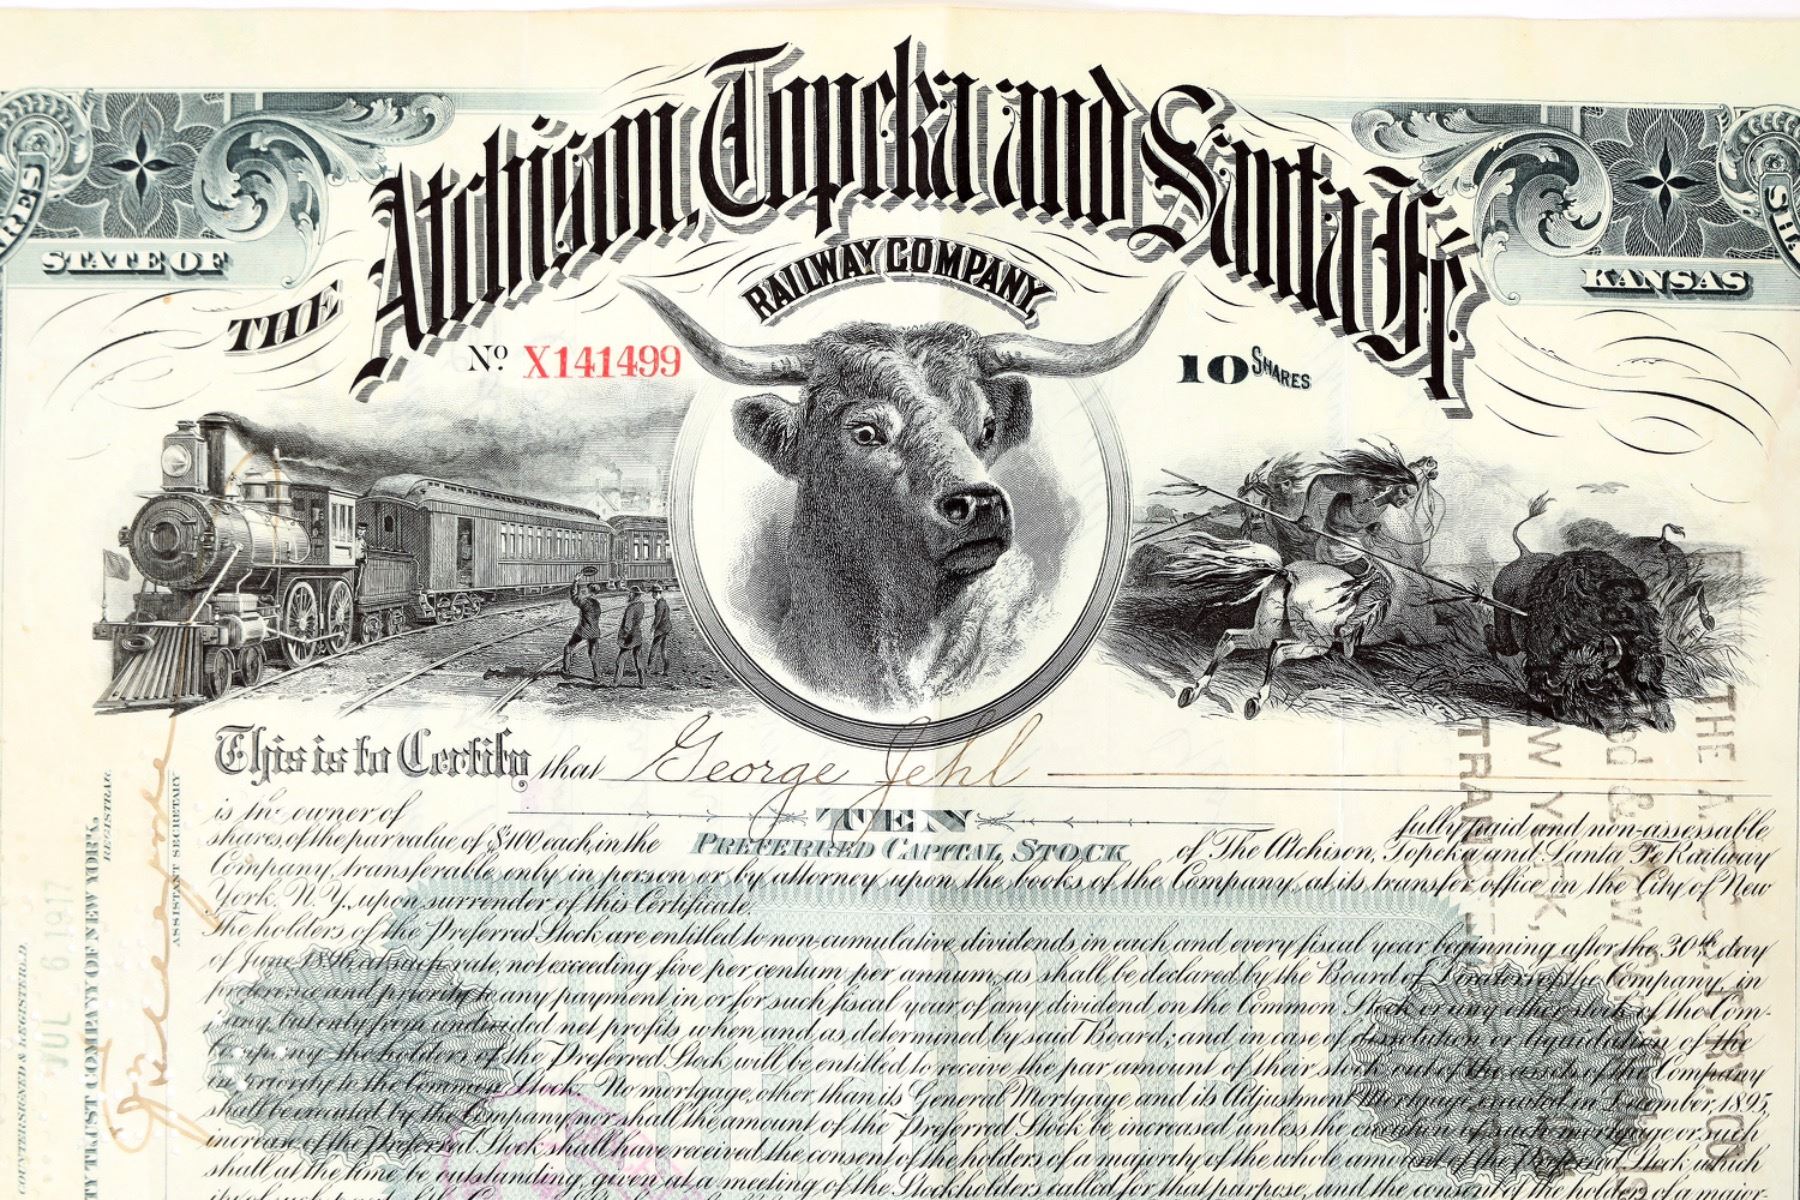 The Atchison, Topeka and Santa Fé
RAILWAY COMPANY,
STATE OF
KANSAS
No X141499
10 SHARES
This is to Certify that George Jehl
is the owner of TEN fully paid and non-assessable
shares, of the par value of $100 each, in the PREFERRED CAPITAL STOCK of The Atchison, Topeka and Santa Fe Railway
Company, transferable only in person or by attorney upon the books of the Company, at its transfer office in the City of New
York, N.Y., upon surrender of this Certificate.
The holders of the Preferred Stock are entitled to non-cumulative dividends in each and every fiscal year beginning after the 30th day
of June 1896 at such rate, not exceeding five per centum per annum, as shall be declared by the Board of Directors of the Company, in
preference and priority to any payment in or for such fiscal year of any dividend on the Common Stock or any other stock of the Com-
pany, but only from undivided net profits when and as determined by said Board; and in case of dissolution or liquidation of the
Company the holders of the Preferred Stock will be entitled to receive the par amount of their stock out of the assets of the Company
in priority to the Common Stock. No mortgage, other than its General Mortgage, and its Adjustment Mortgage, executed in December, 1895,
shall be executed by the Company, nor shall the amount of the Preferred Stock be increased unless the execution of such mortgage or such
increase of the Preferred Stock shall have received the consent of the holders of a majority of the whole amount of the Preferred Stock which
shall at the time be outstanding, given at a meeting of the Stockholders called for that purpose, and the consent of the holders of a major-
COUNTERSIGNED & REGISTERED.
JUL 6 1917
TRUST COMPANY OF NEW YORK,
REGISTRAR
ASSISTANT SECRETARY
THE A.
NEW YORK,